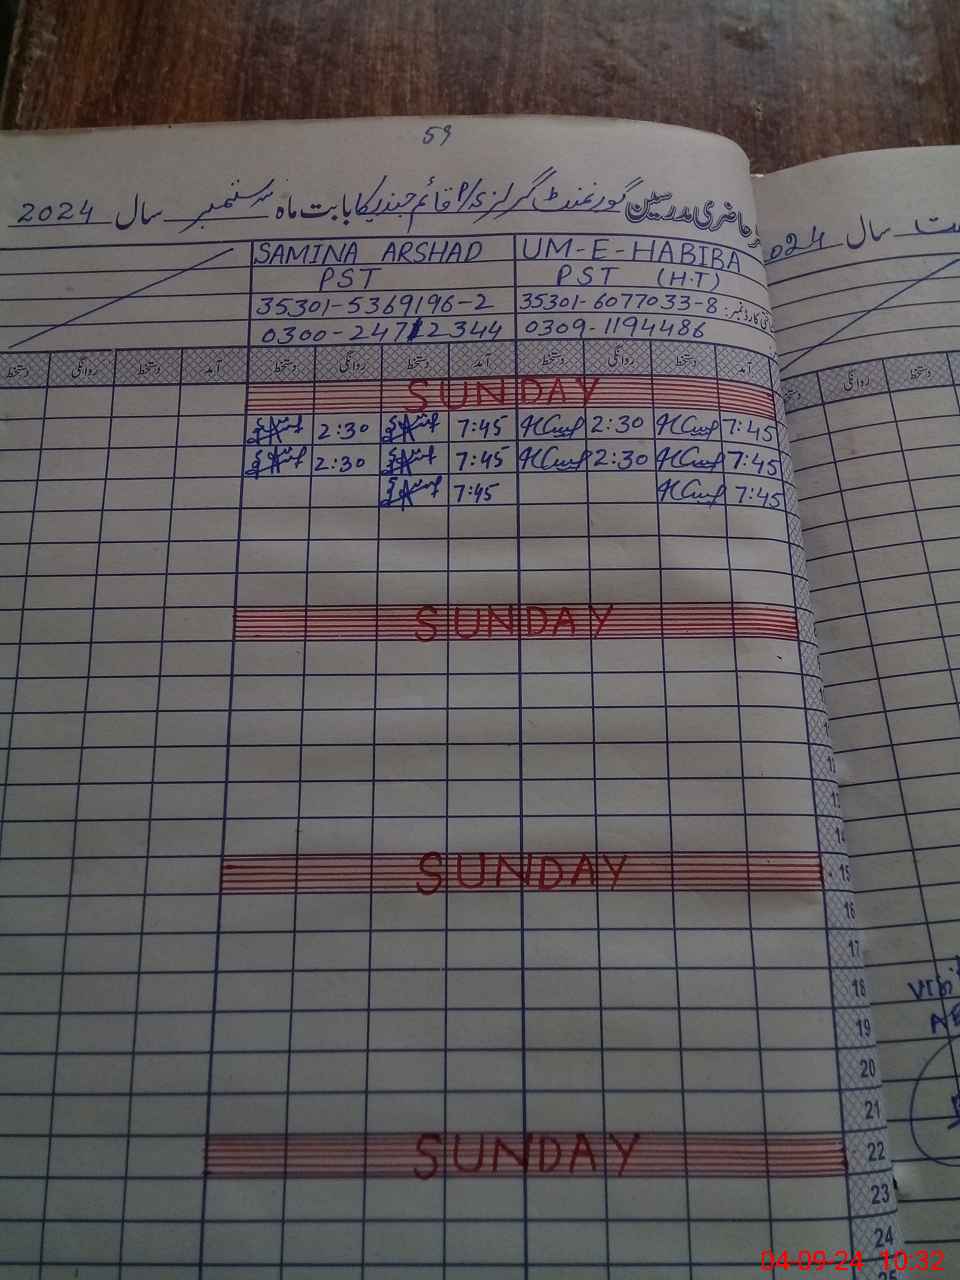 59
حاضری مدرسین گورنمنٹ گرلز بابت ماہ ستمبر سال 2024
SAMINA ARSHAD UM-E-HABIBA
PST PST (H.T)
35301-5369196-2 35301-6077033-8
0300-2472344 0309-1194486
آمد دستخط روانگی دستخط آمد دستخط روانگی دستخط آمد دستخط روانگی دستخط
SUNDAY
2:30 7:45 2:30 7:45
2:30 7:45 2:30 7:45
7:45 7:45
SUNDAY
SUNDAY
15
16
17
18
19
20
21
SUNDAY 22
23
24
سال 2024
روانگی دستخط
04-09-24 10:32